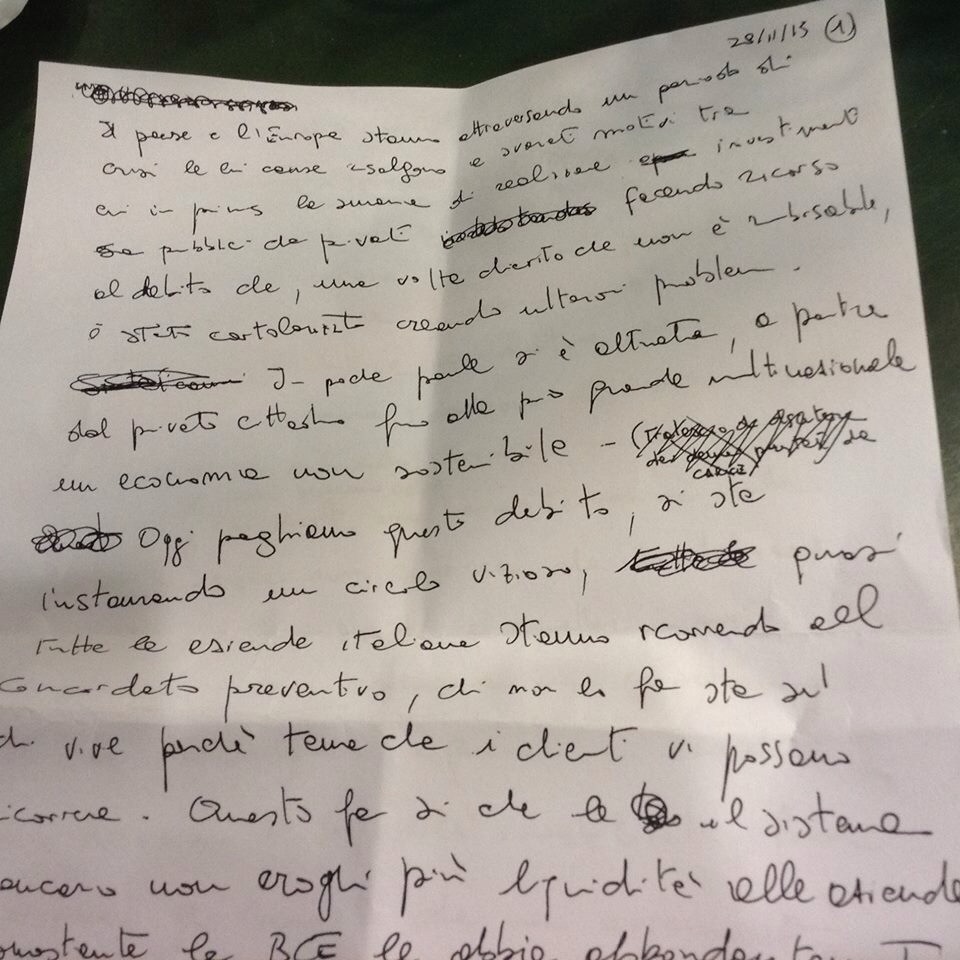 28/11/13 ①
Il paese e l'Europa stanno attraversando un periodo di
crisi le cui cause risalgono a svariati motivi tra
cui in primis la smania di realizzare investimenti
pubblici da privati facendo ricorso
al debito che, una volta chiarito che non è rimborsabile,
è stato cartolarizzato creando ulteriori problemi.
In poche parole si è attuata, a partire
dal privato cittadino fino alla più grande multinazionale
un economia non sostenibile - (
Oggi paghiamo questo debito, si sta
instaurando un circolo vizioso, quasi
tutte le aziende italiane stanno ricorrendo al
concordato preventivo, chi non lo fa sta sul
chi vive perchè teme che i clienti vi possano
icorrere. Questo fa si che il sistema
ancario non eroghi più liquidità alle aziende
nostante la BCE le abbia